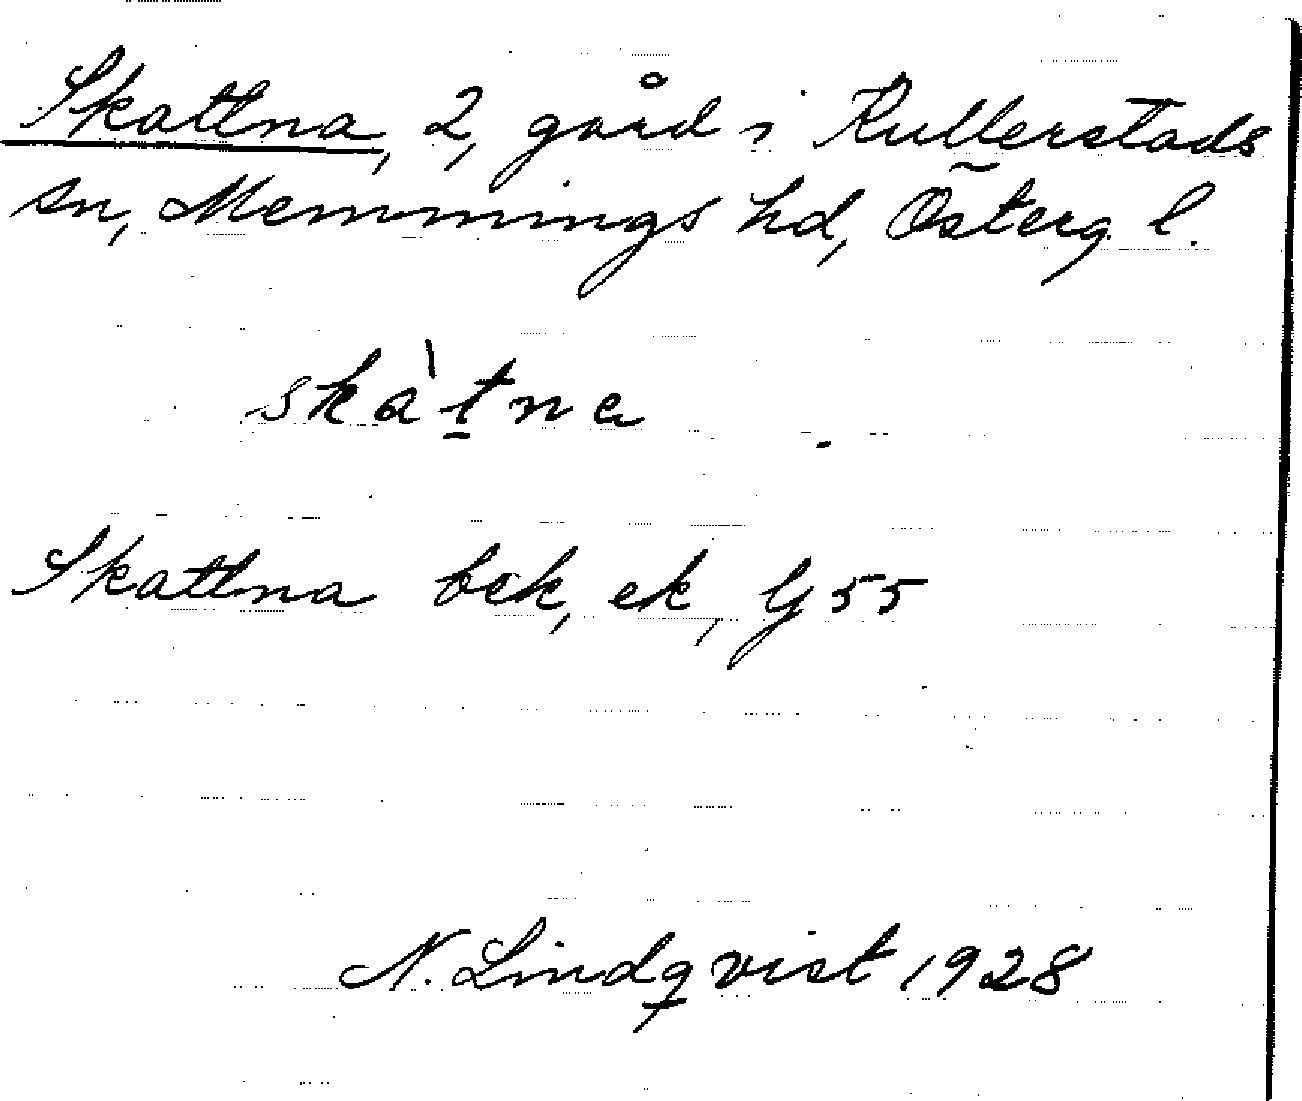 Skattna, 2, gård i Kullerstads
sn, Memmings hd, Österg. l.
skàt̠na
Skattna bek, ek, G 55
N. Lindqvist 1928